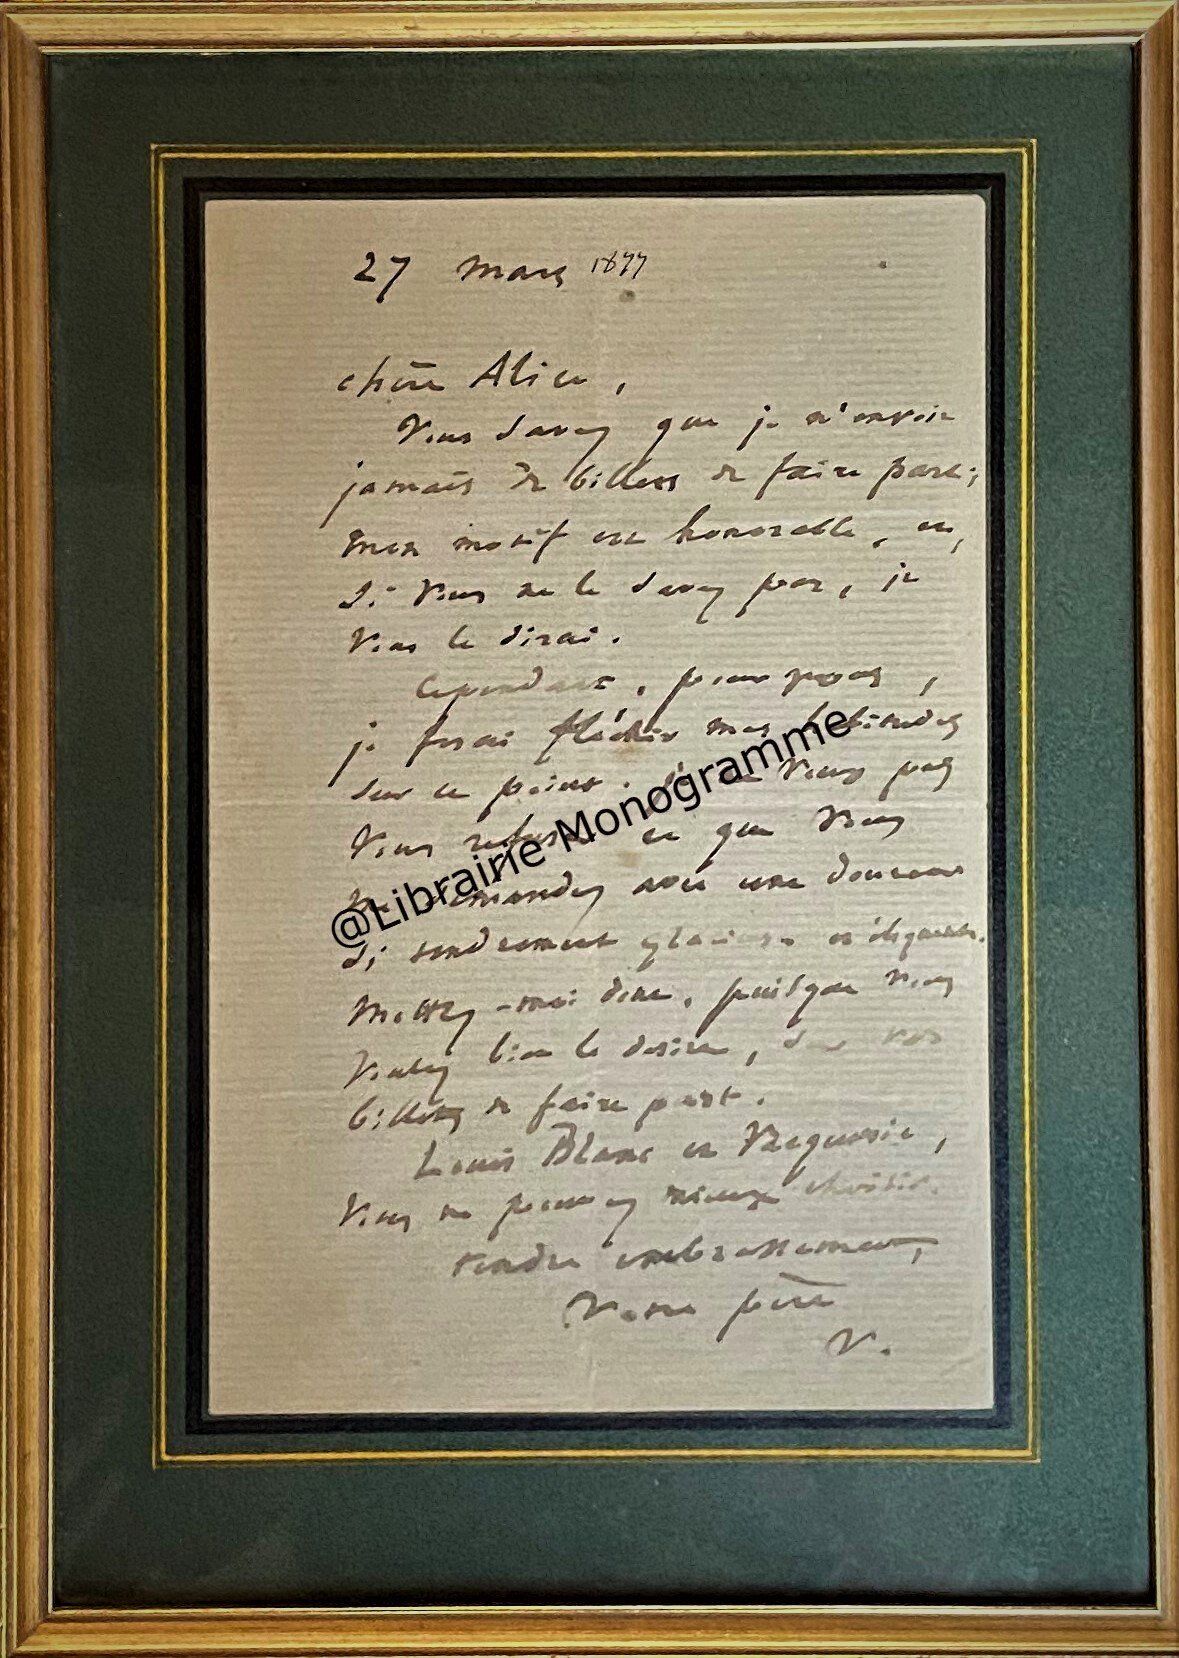 27 mars 1877
chère Alice,
Vous savez que je n'envoie
jamais de billets de faire part;
mon motif est honorable, et,
si vous ne le savez pas, je
vous le dirai.
Cependant, pour vous,
je ferai fléchir mes habitudes
sur ce point. Je ne veux pas
vous refuser ce que vous
me demandez avec une douceur
si tendrement et
Mettez-moi donc, puisque vous
voulez bien le désirer, sur vos
billets de faire part.
Louis Blanc et Vacquerie,
vous ne pouvez mieux choisir.
tendre embrassement,
Votre père
V.
@Librairie Monogramme